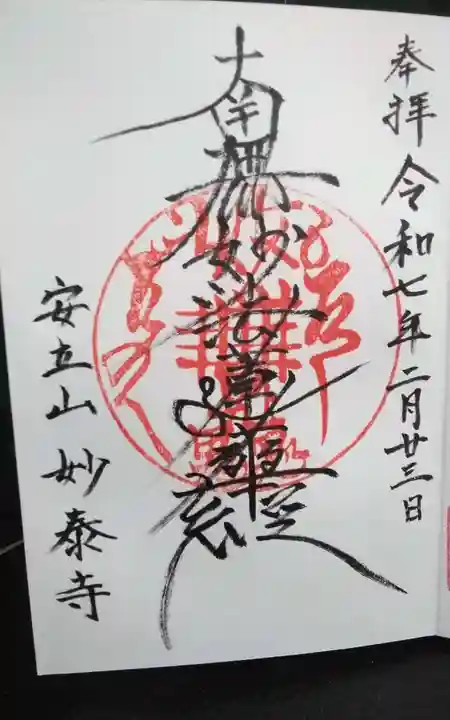 奉拝 令和七年二月廿三日
南無妙法蓮華経
安立山 妙泰寺